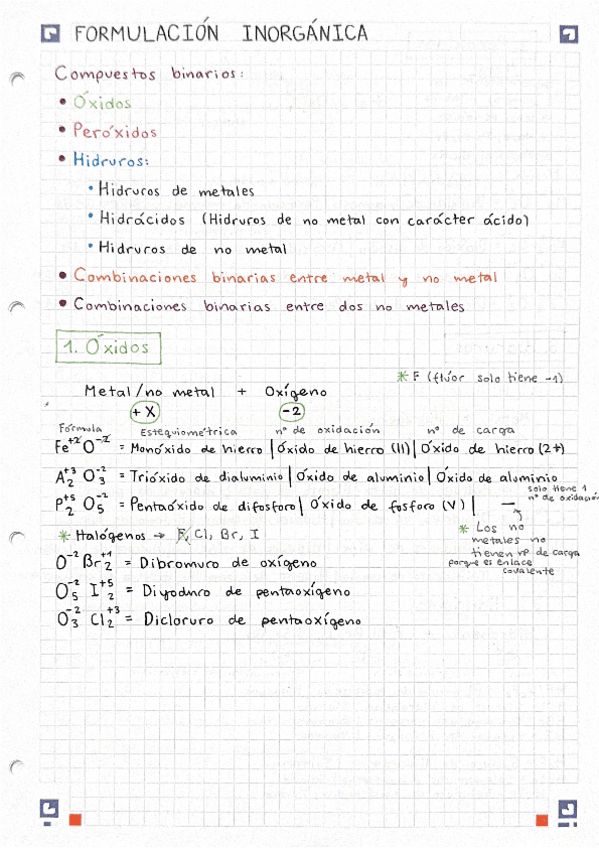 FORMULACIÓN INORGÁNICA
Compuestos binarios:
• Óxidos
• Peróxidos
• Hidruros:
• Hidruros de metales
• Hidrácidos (Hidruros de no metal con carácter ácido)
• Hidruros de no metal
• Combinaciones binarias entre metal y no metal
• Combinaciones binarias entre dos no metales
1. Óxidos
* F (flúor solo tiene -1)
Metal/no metal + Oxígeno
+X -2
Fórmula Estequiométrica nº de oxidación nº de carga
Fe⁺² O⁻² = Monóxido de hierro | Óxido de hierro (II) | Óxido de hierro (2+)
A₂⁺³ O₃⁻² = Trióxido de dialuminio | Óxido de aluminio | Óxido de aluminio
solo tiene 1
nº de oxidación
P₂⁺⁵ O₅⁻² = Pentaóxido de difosforo | Óxido de fosforo (V) | —
* Los no
metales no
tienen nº de carga
porque es enlace
covalente
* Halógenos → F, Cl, Br, I
O⁻² Br₂⁺¹ = Dibromuro de oxígeno
O₅⁻² I₂⁺⁵ = Diyoduro de pentaoxígeno
O₃⁻² Cl₂⁺³ = Dicloruro de pentaoxígeno